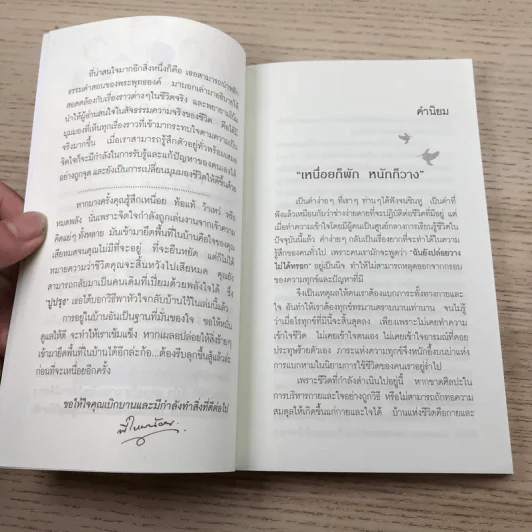 ที่น่าสนใจมากอีกสิ่งหนึ่งก็คือ เธอสามารถนำหลัก
ธรรมคำสอนของพระพุทธองค์ มาบอกเล่ามาอธิบายให้
สอดคล้องกับเรื่องราวต่างๆในชีวิตจริง และพยายามโน้ม
นำให้ผู้อ่านสนใจในสัจธรรมความจริงของชีวิต คือได้มี
มุมมองที่เห็นทุกเรื่องราวที่เข้ามากระทบใจตามความเป็น
จริงมากขึ้น เมื่อเราสามารถรู้สึกตัวอยู่ทั่วพร้อมเสมอ
จิตใจก็จะมีกำลังในการรับรู้และแก้ปัญหาของตนเองได้
อย่างถูกจุด และยังเป็นการเปลี่ยนมุมมองชีวิตให้ดีขึ้นด้วย
หากบางครั้งคุณรู้สึกเหนื่อย ท้อแท้ ว้าเหว่ หรือ
หมดพลัง นั่นเพราะจิตใจกำลังถูกเล่นงานจากเจ้าความ
คิดแย่ๆ ทั้งหลาย มันเข้ามายึดพื้นที่ในบ้านคือใจของคุณ
เสียหมดจนคุณไม่มีที่จะอยู่ ที่จะยืนหยัด แต่ก็ไม่ได้
หมายความว่าชีวิตคุณจะสิ้นหวังไปเสียหมด คุณยัง
สามารถกลับมาเป็นคนเดิมที่เปี่ยมด้วยพลังใจได้ ซึ่ง
เธอได้บอกวิธีพาหัวใจกลับบ้านไว้ในเล่มนี้แล้ว
การอยู่ในบ้านอันเป็นฐานที่มั่นของใจ ขอให้หมั่น
ดูแลให้ดี จะทำให้เราเข้มแข็ง หากเผลอปล่อยให้สิ่งร้ายๆ
เข้ามายึดพื้นที่ในบ้านได้อีกล่ะก้อ...ต้องรีบลุกขึ้นสู้แล้วล่ะ
ก่อนที่จะเหนื่อยอีกครั้ง
ขอให้ใจคุณเบิกบานและมีกำลังทำสิ่งที่ดีต่อไป
คำนิยม
“เหนื่อยก็พัก หนักก็วาง”
เป็นคำง่ายๆ ที่เราๆ ท่านๆ ได้ฟังจนชินหู เป็นคำที่
ฟังแล้วเหมือนกับว่าช่างง่ายดายที่จะปฏิบัติต่อชีวิตที่มีอยู่ แต่
เมื่อทำความเข้าใจโดยมีผู้คนเป็นศูนย์กลางการเรียนรู้ชีวิตใน
ปัจจุบันนี้แล้ว คำง่ายๆ กลับเป็นเรื่องยากที่จะทำได้ในความ
รู้สึกของคนทั่วไป เพราะคนเรามักจะพูดว่า “ฉันยังปล่อยวาง
ไม่ได้หรอก” อยู่เป็นนิจ ทำให้ไม่สามารถหลุดออกจากกรอบ
ของความทุกข์และปัญหาที่มี
จึงเป็นเหตุผลให้คนเราต้องแบกภาระทั้งทางกายและ
ใจ อันทำให้เราต้องทุกข์ทรมานตราบนานเท่านาน จนไม่รู้
ว่าเมื่อไรทุกข์ที่มีนี้จะสิ้นสุดลง เพียงเพราะไม่เคยทำความ
เข้าใจชีวิต ไม่เคยเข้าใจตนเอง ไม่เคยเข้าใจอารมณ์ที่คอย
ประทุษร้ายตัวเอง ภาระแห่งความทุกข์จึงหนักอึ้งบนบ่าแห่ง
การแบกหามในนิยามการใช้ชีวิตของคนเราอยู่ร่ำไป
เพราะชีวิตที่กำลังดำเนินไปอยู่นี้ หากขาดศิลปะใน
การบริหารกายและใจอย่างถูกวิธี หรือไม่สามารถถักทอความ
สมดุลให้เกิดขึ้นแก่กายและใจได้ บ้านแห่งชีวิตคือกายและ